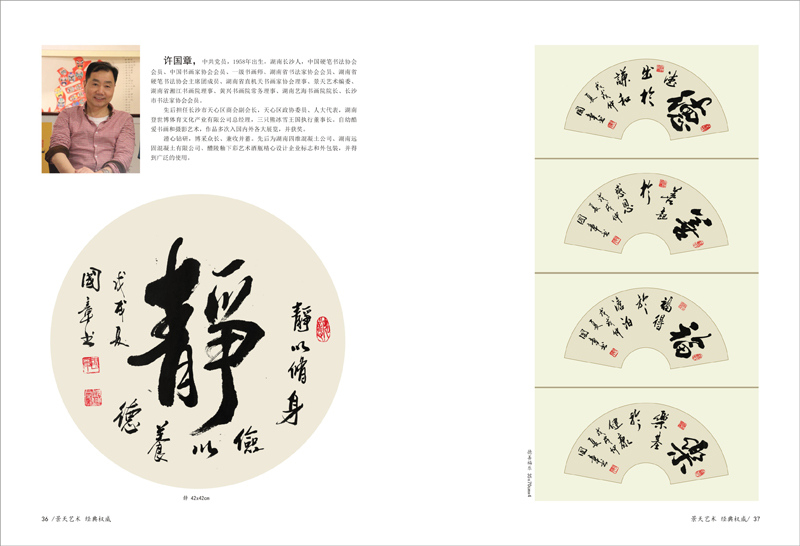 许国章，中共党员，1958年出生，湖南长沙人，中国硬笔书法协会
会员，中国书画家协会会员，一级书画师，湖南省书法家协会会员，湖南省
硬笔书法协会主席团成员，湖南省直机关书画家协会理事，景天艺术编委，
湖南省湘江书画院理事、黄兴书画院常务理事、湖南艺海书画院院长，长沙
市书法家协会会员。
先后担任长沙市天心区商会副会长，天心区政协委员、人大代表，湖南
世世博体育文化产业有限公司总经理，三只熊冰雪王国执行董事长。自幼酷
爱书画和摄影艺术，作品多次入国内外各大展览，并获奖。
潜心钻研，博采众长、兼收并蓄。先后为湖南四维混凝土公司、湖南远
固混凝土有限公司、醴陵釉下彩艺术酒瓶精心设计企业标志和外包装，并得
到广泛的使用。
靜
靜以脩身
儉以養德
戊戌夏
國章书
静 42x42cm
德
德出於謙和
戊戌仲夏
國章书
善
善益於感恩
戊戌仲夏
國章书
福
福得於淡泊
戊戌仲夏
國章书
樂
樂基於健康
戊戌仲夏
國章书
德善福乐
36 /景天艺术 经典权威
景天艺术 经典权威/ 37